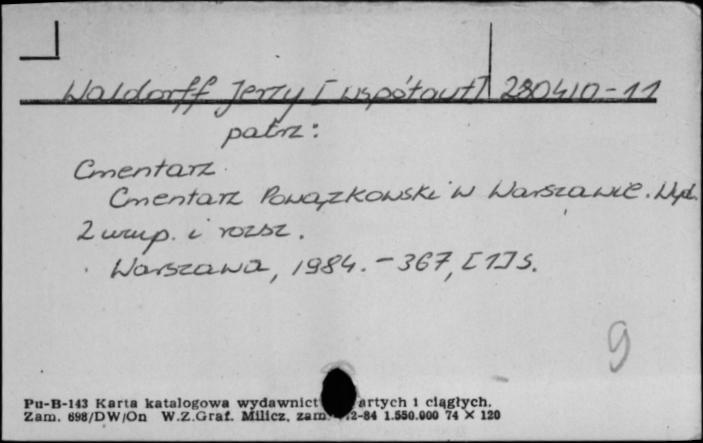 Waldorff Jerzy [współaut] 280410-11
patrz:
Cmentarz.
Cmentarz Powązkowski w Warszawie. Wyd.
2 uzup. i rozsz.
Warszawa, 1984. - 367, [1] s.
9
Pu-B-143 Karta katalogowa wydawnict artych i ciągłych.
Zam. 698/DW/On W.Z.Graf. Milicz, zam. 2-84 1.550.000 74 × 120